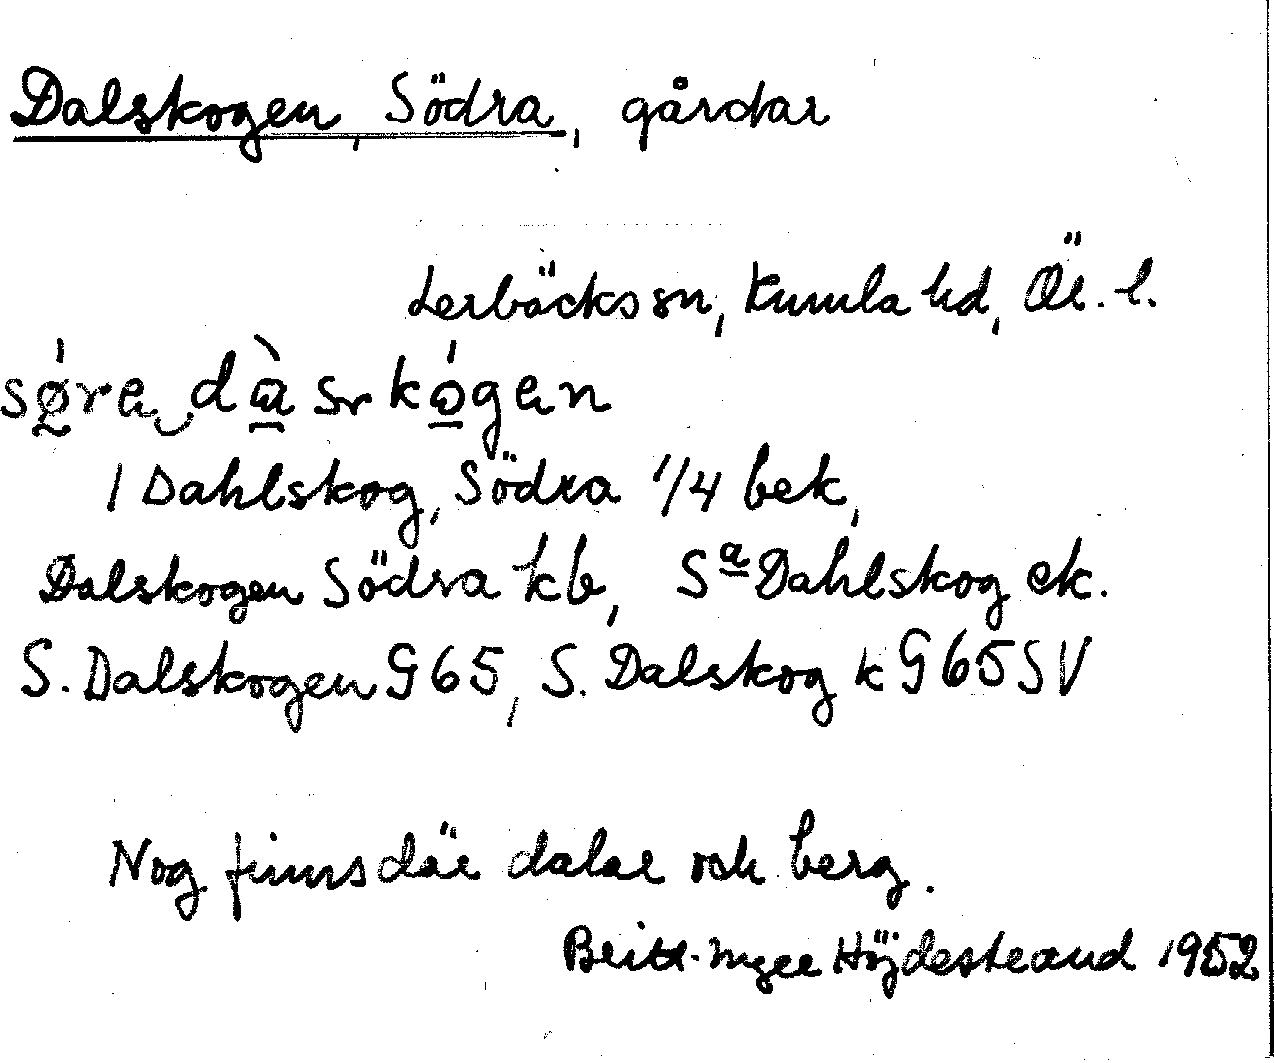 Dalskogen, Södra, gårdar
Lerbäcks sn, Kumla hd, Ör. l.
sø̀re dà sr kógen
1 Dahlskog, Södra 1/4 bek,
Dalskogen Södra kb, Sª Dahlskog ek.
S. Dalskogen G 65, S. Dalskog k G 65 SV
Nog finns där dalar och berg.
Britt-Inger Höjdestrand 1952